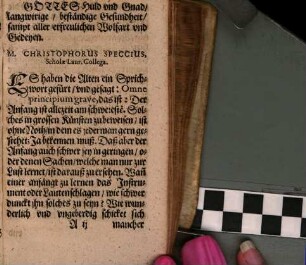 GOTTES Huld vnd Gnad/
langwirige / beständige Gesundheit/
sampt aller erfreulichen Wolfart vnd
Gedeyen.
M. CHRISTOPHORUS SPECCIUS,
Scholæ Laur. Collega.
ES haben die Alten ein Sprich-
wort gefürt/ vnd gesagt: Omne
principium grave, das ist: Der
Anfang ist allezeit am schweresté. Sol-
ches in grossen Künsten zu beweisen / ist
ohne Noth/in dem es jederman gern ge-
stehet: Ja bekennen muß. Daß aber der
Anfang auch schwer sey in geringen / o-
der denen Sachen/ welche man nur zur
Lust lernet/ ist darauß zu ersehen. Wañ
einer anfängt zu lernen das Instru-
ment oder Lautenschlagen / wie schwer
dunckt ihn solches zu seyn? Wie wun-
derlich vnd vngeberdig schicket sich
A ij mancher